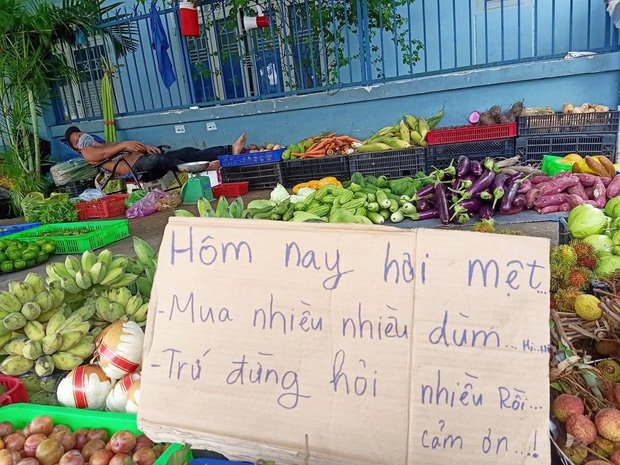 Hôm nay hơi mệt...
- Mua nhiều nhiều dùm... Hi... Hi
- Trứ đừng hỏi nhiều Rồi...
cảm ơn...!